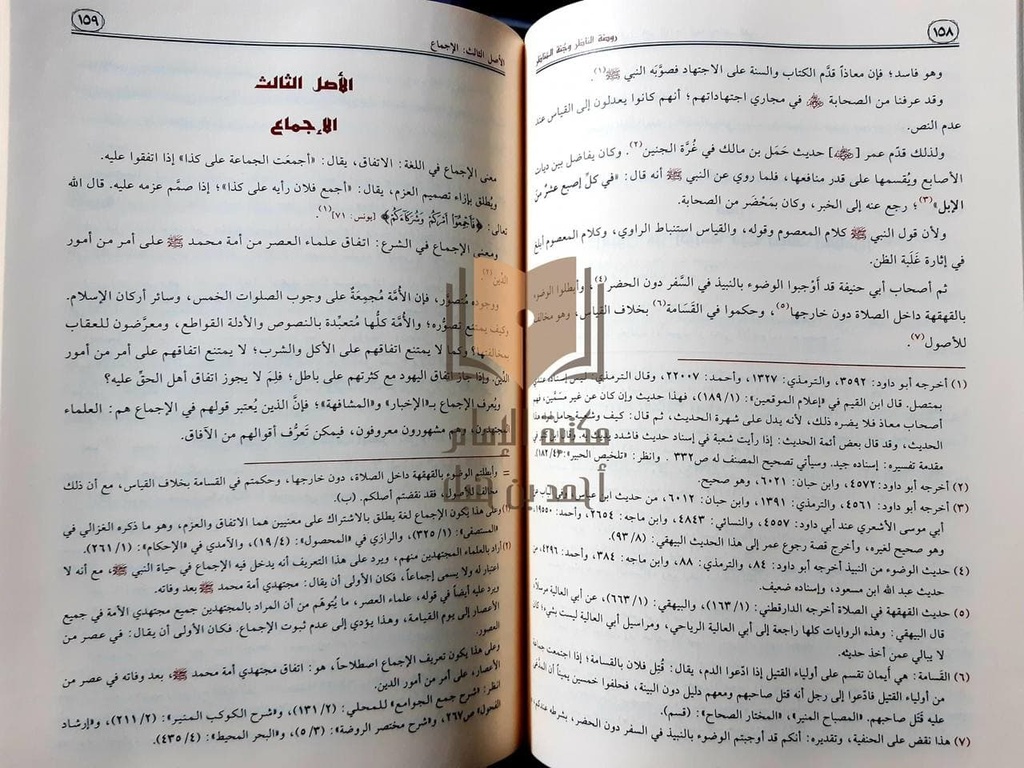 ١٥٨
روضة الناظر وجُنة المناظر
وهو فاسد؛ فإن معاذاً قدَّم الكتاب والسنة على الاجتهاد فصوَّبه النبي ﷺ(١).
وقد عرفنا من الصحابة ﵃ في مجاري اجتهاداتهم؛ أنهم كانوا يعدلون إلى القياس عند
عدم النص.
ولذلك قدَّم عمر [﵁] حديث حَمَل بن مالك في غُرَّة الجنين(٢). وكان يفاضل بين ديات
الأصابع ويُقسمها على قدر منافعها، فلما روي عن النبي ﷺ أنه قال: «في كلِّ إصبع عشرٌ من
الإبل»(٣)؛ رجع عنه إلى الخبر، وكان بمَحْضَر من الصحابة.
ولأن قول النبي ﷺ كلام المعصوم وقوله، والقياس استنباط الراوي، وكلام المعصوم أبلغ
في إثارة غَلَبة الظن.
ثم أصحاب أبي حنيفة قد أَوْجبوا الوضوء بالنبيذ في السَّفر دون الحضر(٤)، وأبطلوا الوضوء
بالقهقهة داخل الصلاة دون خارجها(٥)، وحكموا في القَسَامة(٦) بخلاف القياس، وهو مخالف
للأصول(٧).
(١) أخرجه أبو داود: ٣٥٩٢، والترمذي: ١٣٢٧، وأحمد: ٢٢٠٠٧، وقال الترمذي: ليس إسناده عندي
بمتصل. قال ابن القيم في «إعلام الموقعين»: (١/١٨٩)، فهذا حديث وإن كان عن غير مسَمَّين، فهم
أصحاب معاذ فلا يضره ذلك، لأنه يدل على شهرة الحديث، ثم قال: كيف وشعبة حامل لواء هذا
الحديث، وقد قال بعض أئمة الحديث: إذا رأيت شعبة في إسناد حديث فاشدد
مقدمة تفسيره: إسناده جيد. وسيأتي تصحيح المصنف له ص٣٣٢. وانظر: «تلخيص الحبير»: (٤/١٨٢).
(٢) أخرجه أبو داود: ٤٥٧٢، وابن حبان: ٦٠٢١، وهو صحيح.
(٣) أخرجه أبو داود: ٤٥٦١، والترمذي: ١٣٩١، وابن حبان: ٦٠١٢، من حديث ابن عباس
أبي موسى الأشعري عند أبي داود: ٤٥٥٧، والنسائي: ٤٨٤٣، وابن ماجه: ٢٦٥٤، وأحمد: ١٩٥٥٠،
وهو صحيح لغيره، وأخرج قصة رجوع عمر إلى هذا الحديث البيهقي: (٨/٩٣).
(٤) حديث الوضوء من النبيذ أخرجه أبو داود: ٨٤، والترمذي: ٨٨، وابن ماجه: ٣٨٤، وأحمد: ٤٢٩٦، من
حديث عبد الله ابن مسعود، وإسناده ضعيف.
(٥) حديث القهقهة في الصلاة أخرجه الدارقطني: (١/١٦٣)، والبيهقي: (١/٦٦٣)، عن أبي العالية مرسلاً،
قال البيهقي: وهذه الروايات كلها راجعة إلى أبي العالية الرياحي، ومراسيل أبي العالية ليست بشيء؛ كان
لا يبالي عمن أخذ حديثه.
(٦) القَسَامة: هي أيمان تقسم على أولياء القتيل إذا ادّعوا الدم، يقال: قُتِل فلان بالقسامة؛ إذا اجتمعت جماعة
من أولياء القتيل فادّعوا إلى رجل أنه قتل صاحبهم ومعهم دليل دون البينة، فحلفوا خمسين يميناً أن المدَّعى
عليه قَتل صاحبهم. «المصباح المنير»، «المختار الصحاح»: (قسم).
(٧) هذا نقض على الحنفية، وتقديره: أنكم قد أوجبتم الوضوء بالنبيذ في السفر دون الحضر، بشرطه عندكم
الأصل الثالث: الإجماع
١٥٩
الأصل الثالث
الإجماع
معنى الإجماع في اللغة: الاتفاق، يقال: «أجمعَت الجماعة على كذا» إذا اتفقوا عليه.
ويُطلق بإزاء تصميم العزم، يقال: «أجمع فلان رأيه على كذا»؛ إذا صمَّم عزمه عليه. قال الله
تعالى: ﴿فَأَجْمِعُوٓا۟ أَمْرَكُمْ وَشُرَكَآءَكُمْ﴾ [يونس: ٧١](١).
ومعنى الإجماع في الشرع: اتفاق علماء العصر من أمة محمد ﷺ على أمر من أمور
الدِّين(٢).
ووجوده مُتصوَّر، فإن الأُمَّة مُجمِعةٌ على وجوب الصلوات الخمس، وسائر أركان الإسلام.
وكيف يمتنع تصوُّره؛ والأُمَّة كلُّها متعبَّدة بالنصوص والأدلة القواطع، ومعرَّضون للعقاب
بمخالفتها؟ وكما لا يمتنع اتفاقهم على الأكل والشرب؛ لا يمتنع اتفاقهم على أمر من أمور
الدين. وإذا جاز اتفاق اليهود مع كثرتهم على باطل؛ فلِمَ لا يجوز اتفاق أهل الحقِّ عليه؟
ويُعرف الإجماع بـ«الإخبار» و«المشافهة»؛ فإنَّ الذين يُعتبر قولهم في الإجماع هم: العلماء
المجتهدون، وهم مشهورون معروفون، فيمكن تَعرُّف أقوالهم من الآفاق.
= وأبطلتم الوضوء بالقهقهة داخل الصلاة، دون خارجها، وحكمتم في القسامة بخلاف القياس، مع أن ذلك
مخالف للأصول، فقد نقضتم أصلكم. (ب).
(١) وعلى هذا يكون الإجماع لغة يطلق بالاشتراك على معنيين هما الاتفاق والعزم، وهو ما ذكره الغزالي في
«المستصفى»: (١/٣٢٥)، والرازي في «المحصول»: (٤/١٩)، والآمدي في «الإحكام»: (١/٢٦١).
(٢) أراد بالعلماء المجتهدين منهم، ويرد على هذا التعريف أنه يدخل فيه الإجماع في حياة النبي ﷺ، مع أنه لا
اعتبار له ولا يسمى إجماعاً، فكان الأولى أن يقال: مجتهدي أمة محمد ﷺ بعد وفاته.
ويرد عليه أيضاً في قوله، علماء العصر، ما يُتوهّم من أن المراد بالمجتهدين جميع مجتهدي الأمة في جميع
الأعصار إلى يوم القيامة، وهذا يؤدي إلى عدم ثبوت الإجماع. فكان الأولى أن يقال: في عصر من
العصور.
وعلى هذا يكون تعريف الإجماع اصطلاحاً، هو: اتفاق مجتهدي أمة محمد ﷺ، بعد وفاته في عصر من
الأعصار، على أمر من أمور الدين.
انظر: «شرح جمع الجوامع» للمحلي: (٢/١٣١)، و«شرح الكوكب المنير»: (٢/٢١١)، و«إرشاد
الفحول» ص٢٦٧، و«شرح مختصر الروضة»: (٣/٥)، و«البحر المحيط»: (٤/٤٣٥).
مكتبة الإمام
أحمد بن حنبل